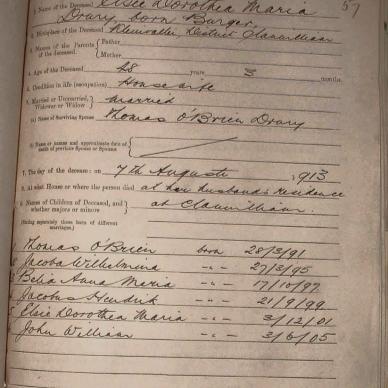 57
1. Name of the Deceased Elsie Dorothea Maria
Drury, born Burger
2. Birthplace of the Deceased District Clanwilliam
3. Names of the Parents of the deceased. Father
Mother
4. Age of the Deceased 48 years 3 months.
5. Condition in life (occupation) Housewife
6. Married or Unmarried, Widower or Widow married
(a) Name of Surviving Spouse Thomas O'Brien Drury
(b) Name or names and approximate date of death of previous Spouse or Spouses
7. The day of the decease: on 7th Augustus 1913
8. At what House or where the person died at her husband's residence
9. Names of Children of Deceased, and whether majors or minors at Clanwilliam.
(Stating separately those born of different marriages.)
Thomas O'Brien born 28/3/91
Jacoba Wilhelmina -"- 27/3/95
Belia Anna Maria -"- 17/10/97
Jacobus Hendrik -"- 21/9/99
Elsie Dorothea Maria -"- 3/12/01
John William -"- 3/6/05